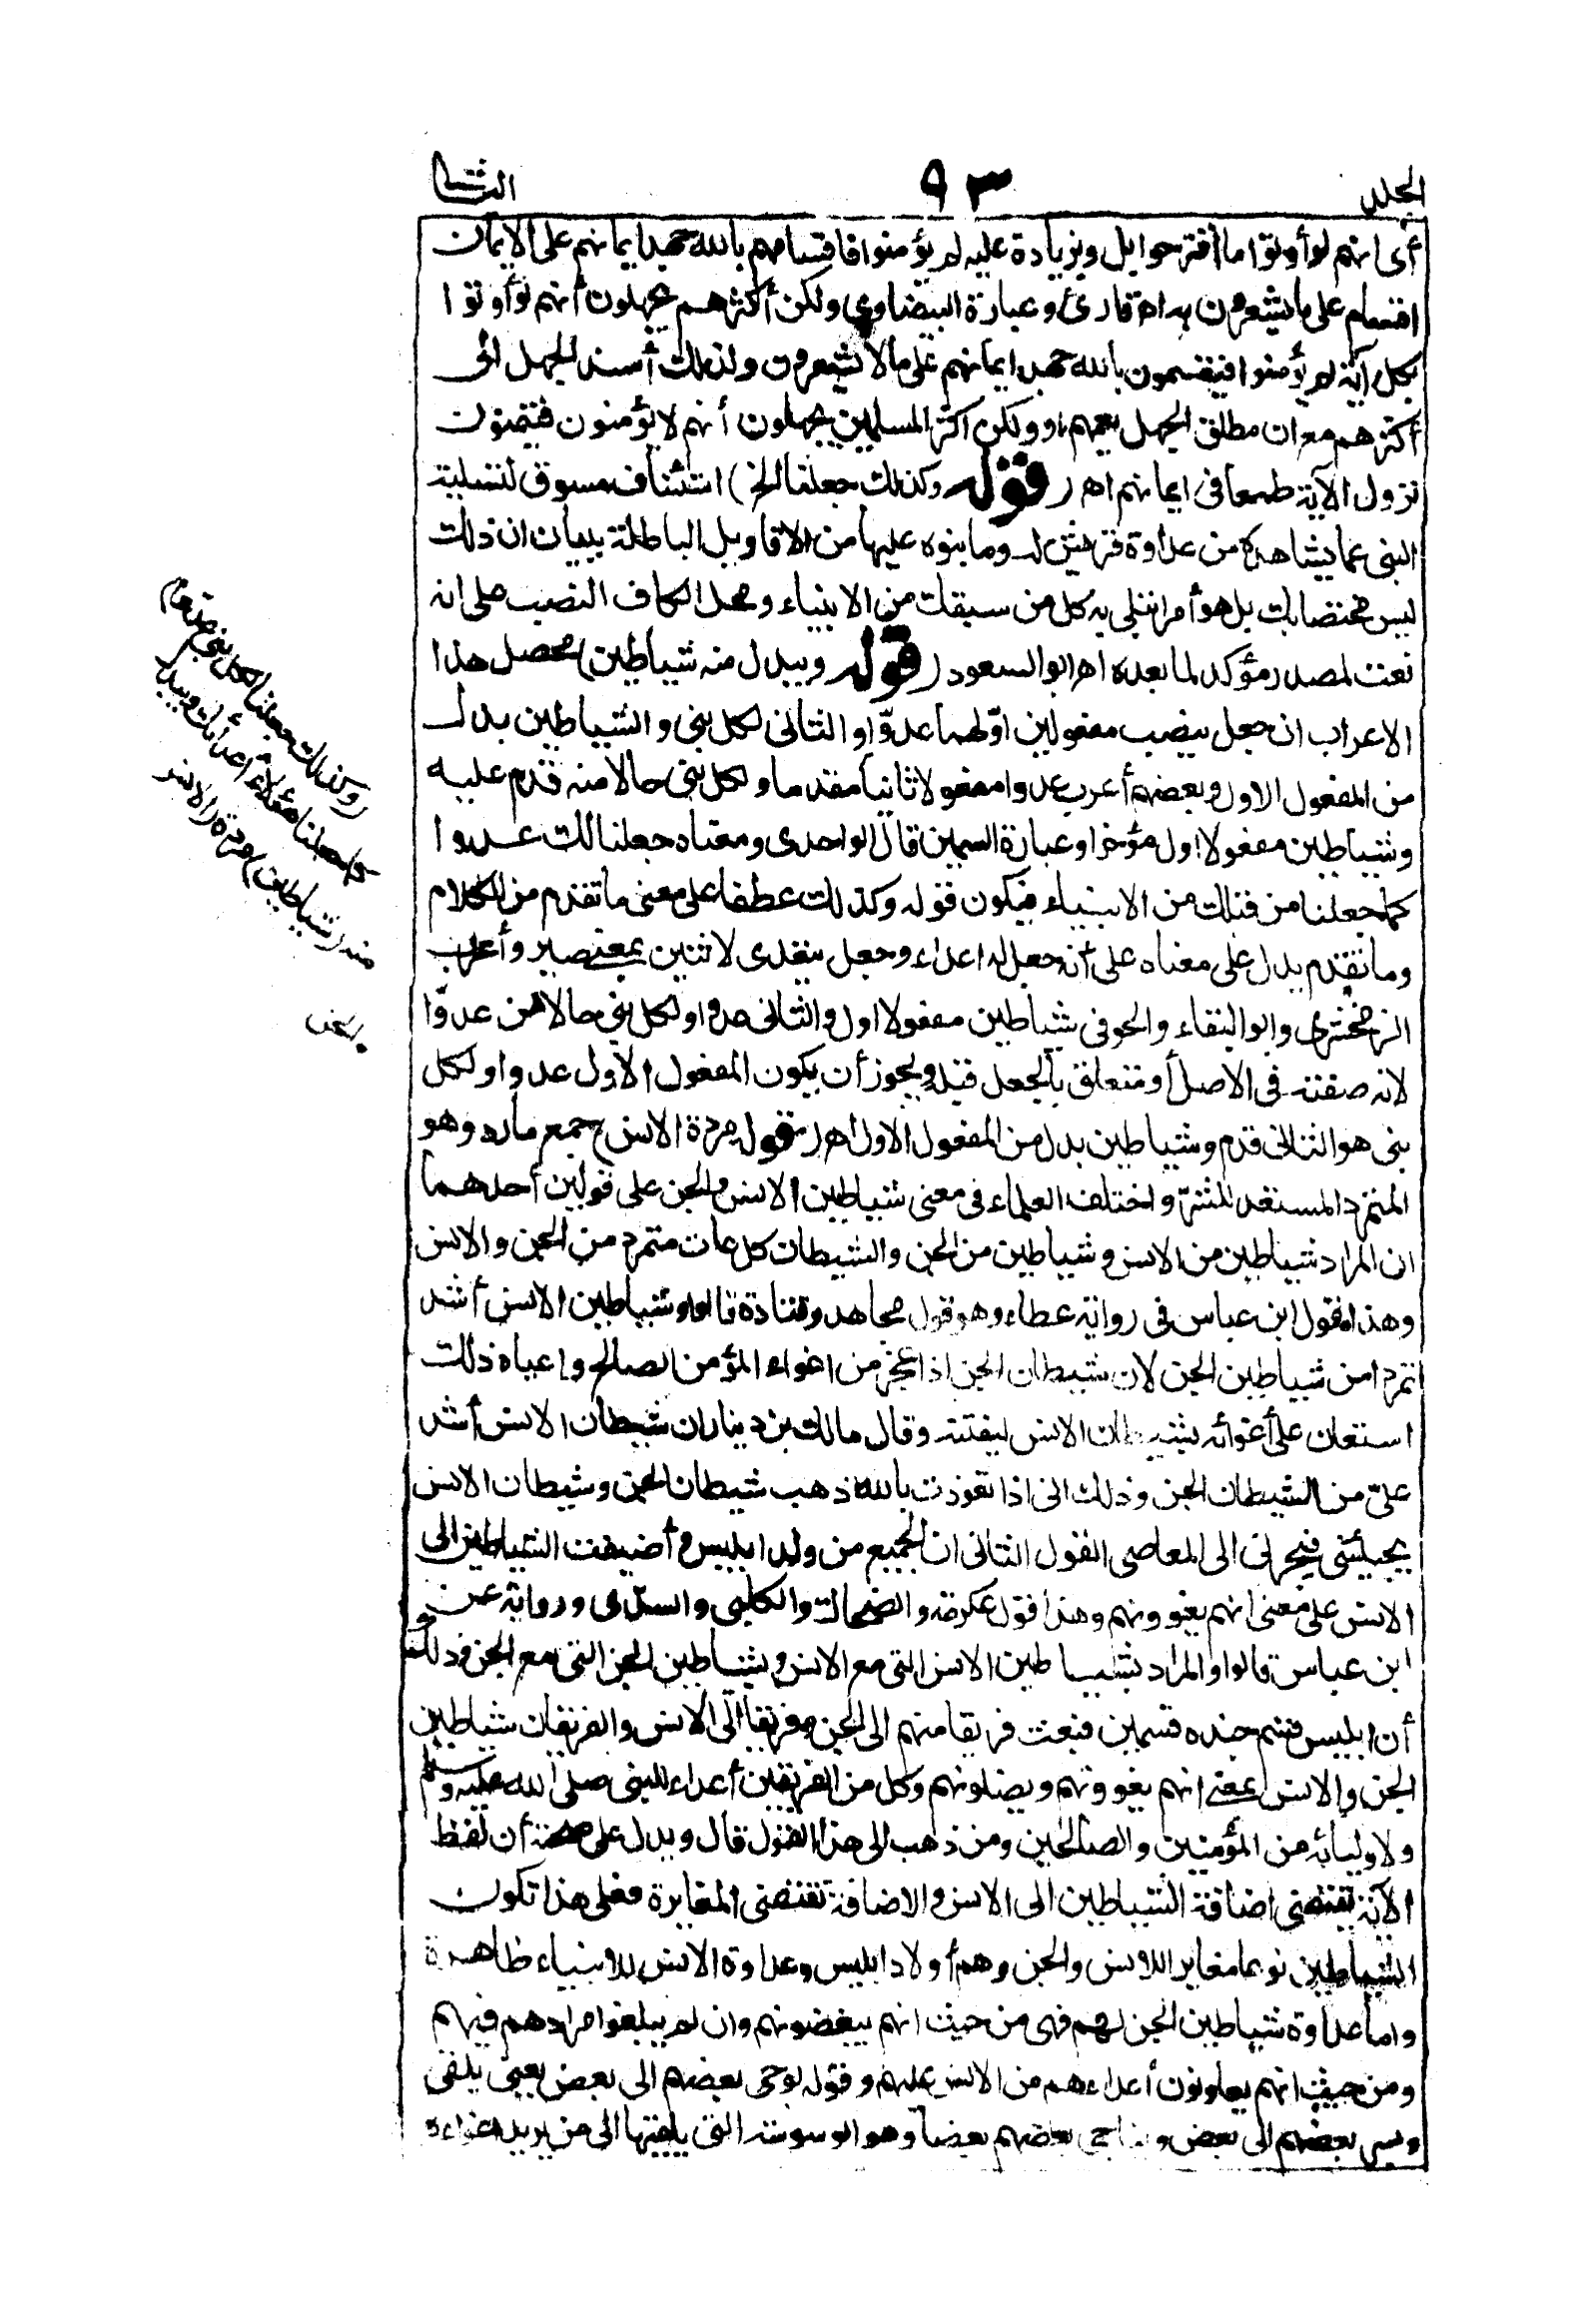 الجلد ٩٣ الثانى
أى انهم لو أوتوا ما اقترحوا بل وبزيادة عليه لم يؤمنوا فاقسامهم بالله جهد ايمانهم على الايمان
اقسام على ما يشعرون به اه قارئ وعبارة البيضاوى ولكن أكثرهم يجهلون أنهم لو أوتوا
بكل آية لم يؤمنوا فيقسمون بالله جهد ايمانهم على ما لا يشعرون ولذلك أسند الجهل الى
أكثرهم مع ان مطلق الجهل يعمهم او ولكن اكثر المسلمين يجهلون أنهم لا يؤمنون فيتمنون
نزول الآية طمعا فى ايمانهم اه (قوله وكذلك جعلنا الخ) استئناف مسوق لتسلية
النبى عما يشاهده من عداوة قريش له وما بنوه عليها من الاقاويل الباطلة ببيان ان ذلك
ليس مختصا بك بل هو أمر ابتلى به كل من سبقك من الانبياء ومحل الكاف النصب على انه
نعت لمصدر مؤكد لما بعده اه ابو السعود (قوله ويبدل منه شياطين) محصل هذا
الاعراب ان جعل ينصب مفعولين اوّلهما عدوّا والثانى لكل نبى والشياطين بدل
من المفعول الاول وبعضهم أعرب عدوا مفعولا ثانيا مقدما ولكل نبى حالا منه قدم عليه
وشياطين مفعولا اول مؤخرا وعبارة السمين قال الواحدى ومعناه جعلنا لك عدوا
كما جعلنا من قبلك من الانبياء فيكون قوله وكذلك عطفا على معنى ما تقدم من الكلام
وما تقدم يدل على معناه على أنه جعل له اعداء وجعل يتعدى لاثنين بمعنى صير وأعرب
الزمخشرى وابو البقاء والحوفى شياطين مفعولا اول والثانى عدوا ولكل نبى حالا من عدوّا
لانه صفته فى الاصل أو متعلق بالجعل قبله ويجوز أن يكون المفعول الاول عدوا ولكل
نبى هو الثانى قدم وشياطين بدل من المفعول الاول اه (قوله مردة الانس) جمع مارد وهو
المتمرد المستعد للشرّ واختلف العلماء فى معنى شياطين الانس والجن على قولين أحدهما
ان المراد شياطين من الانس وشياطين من الجن والشيطان كل عات متمرد من الجن والانس
وهذا قول ابن عباس فى رواية عطاء وهو قول مجاهد وقتادة قالوا وشياطين الانس أشد
تمردا من شياطين الجن لان شيطان الجن اذا عجز من اغواء المؤمن الصالح واعياه ذلك
استعان على أغوائه بشيطان الانس ليفتنه وقال مالك بن دينار ان شيطان الانس أشد
علىّ من الشيطان الجن وذلك انى اذا تعوذت بالله ذهب شيطان الجن وشيطان الانس
يجيئنى فيجرنى الى المعاصى القول الثانى ان الجميع من ولد ابليس وأضيفت الشياطين الى
الانس على معنى انهم يغوونهم وهذا قول عكرمة والضحاك والكلبى والسدى ورواية عن
ابن عباس قالوا والمراد بشياطين الانس التى مع الانس وبشياطين الجن التى مع الجن وذلك
أن ابليس قسم جنده قسمين فبعث فريقا منهم الى الجن وفريقا الى الانس والفريقان شياطين
الجن والانس بمعنى انهم يغوونهم ويضلونهم وكل من الفريقين أعداء للنبى صلى الله عليه وسلم
ولاوليائه من المؤمنين والصالحين ومن ذهب الى هذا القول قال ويدل على صحته أن لفظ
الآية يقتضى اضافة الشياطين الى الانس والاضافة تقتضى المغايرة فعلى هذا تكون
الشياطين نوعا مغايرا للانس والجن وهم أولاد ابليس وعداوة الانس للانبياء ظاهرة
وأما عداوة شياطين الجن لهم فهى من حيث انهم يبغضونهم وان لم يبلغوا مرادهم فيهم
ومن حيث انهم يعاونون أعداءهم من الانس عليهم وقوله يوحى بعضهم الى بعض يعنى يلقى
ويسر بعضهم الى بعض ويناجى بعضهم بعضا وهو الوسوسة التى يلقيها الى من يريد اغواءه
(وكذلك جعلنا لكل نبى عدوا)
كما جعلنا هؤلاء اعداءك ويبدل
منه (شياطين) مردة (الانس
والجن